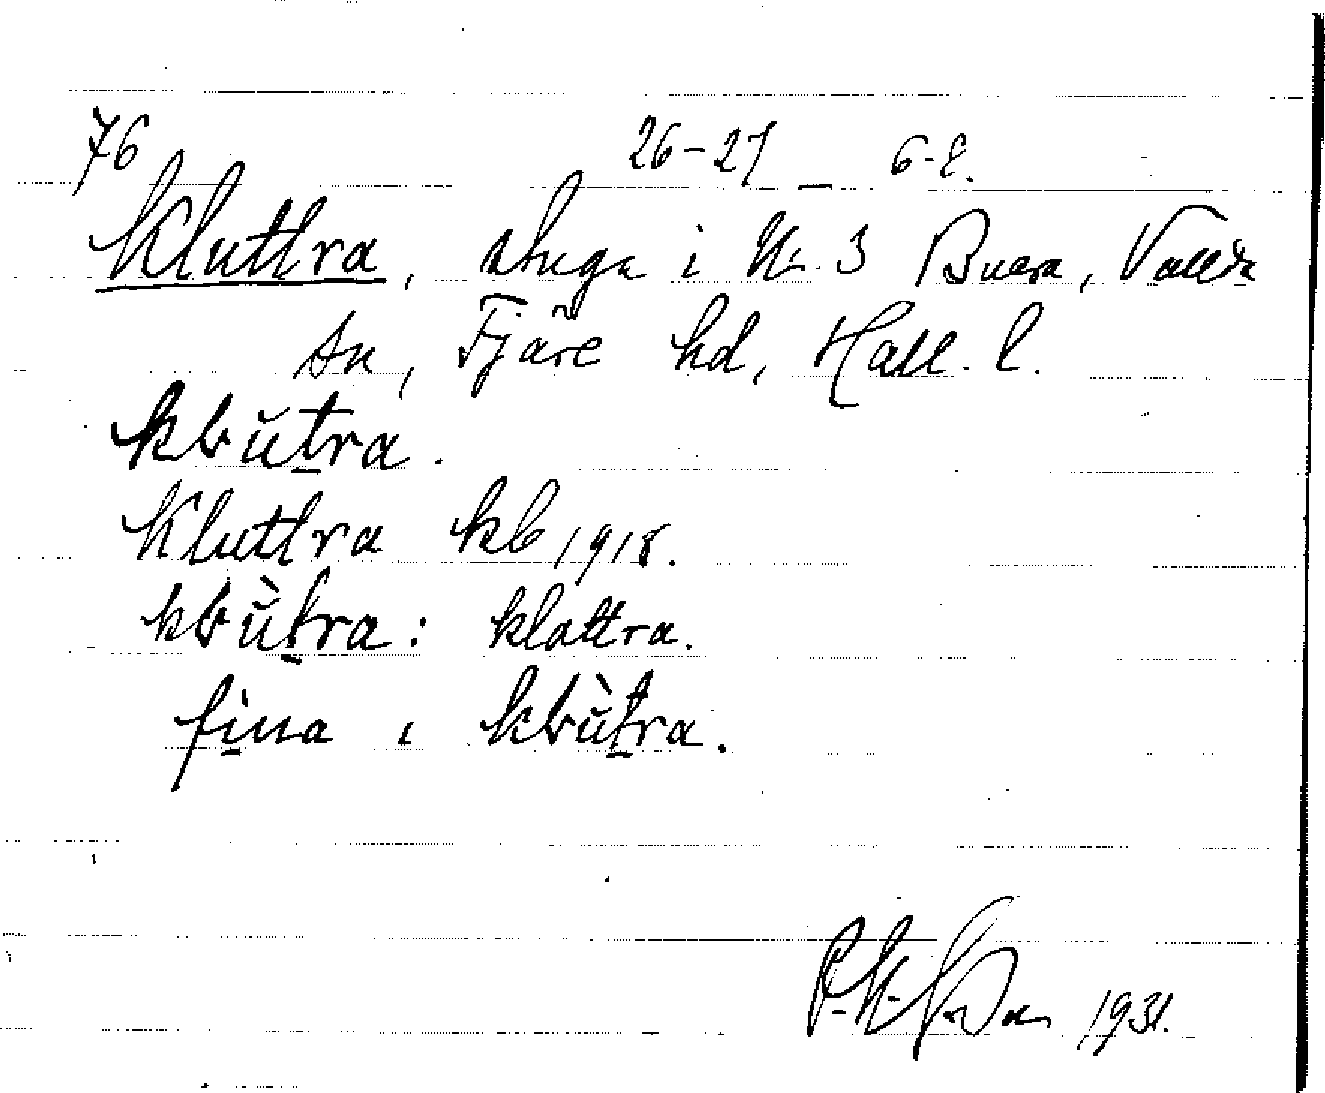 76 26-27 — 6-8.
Kluttra, stuga i Nr. 3 Buera, Vallda
sn, Fjäre hd, Hall. l.
kɫŭt̲ra.
Kluttra kb 1918.
kɫŭ̀t̲ra: klattra.
fi̲na i kɫŭ̀t̲ra.
1931.